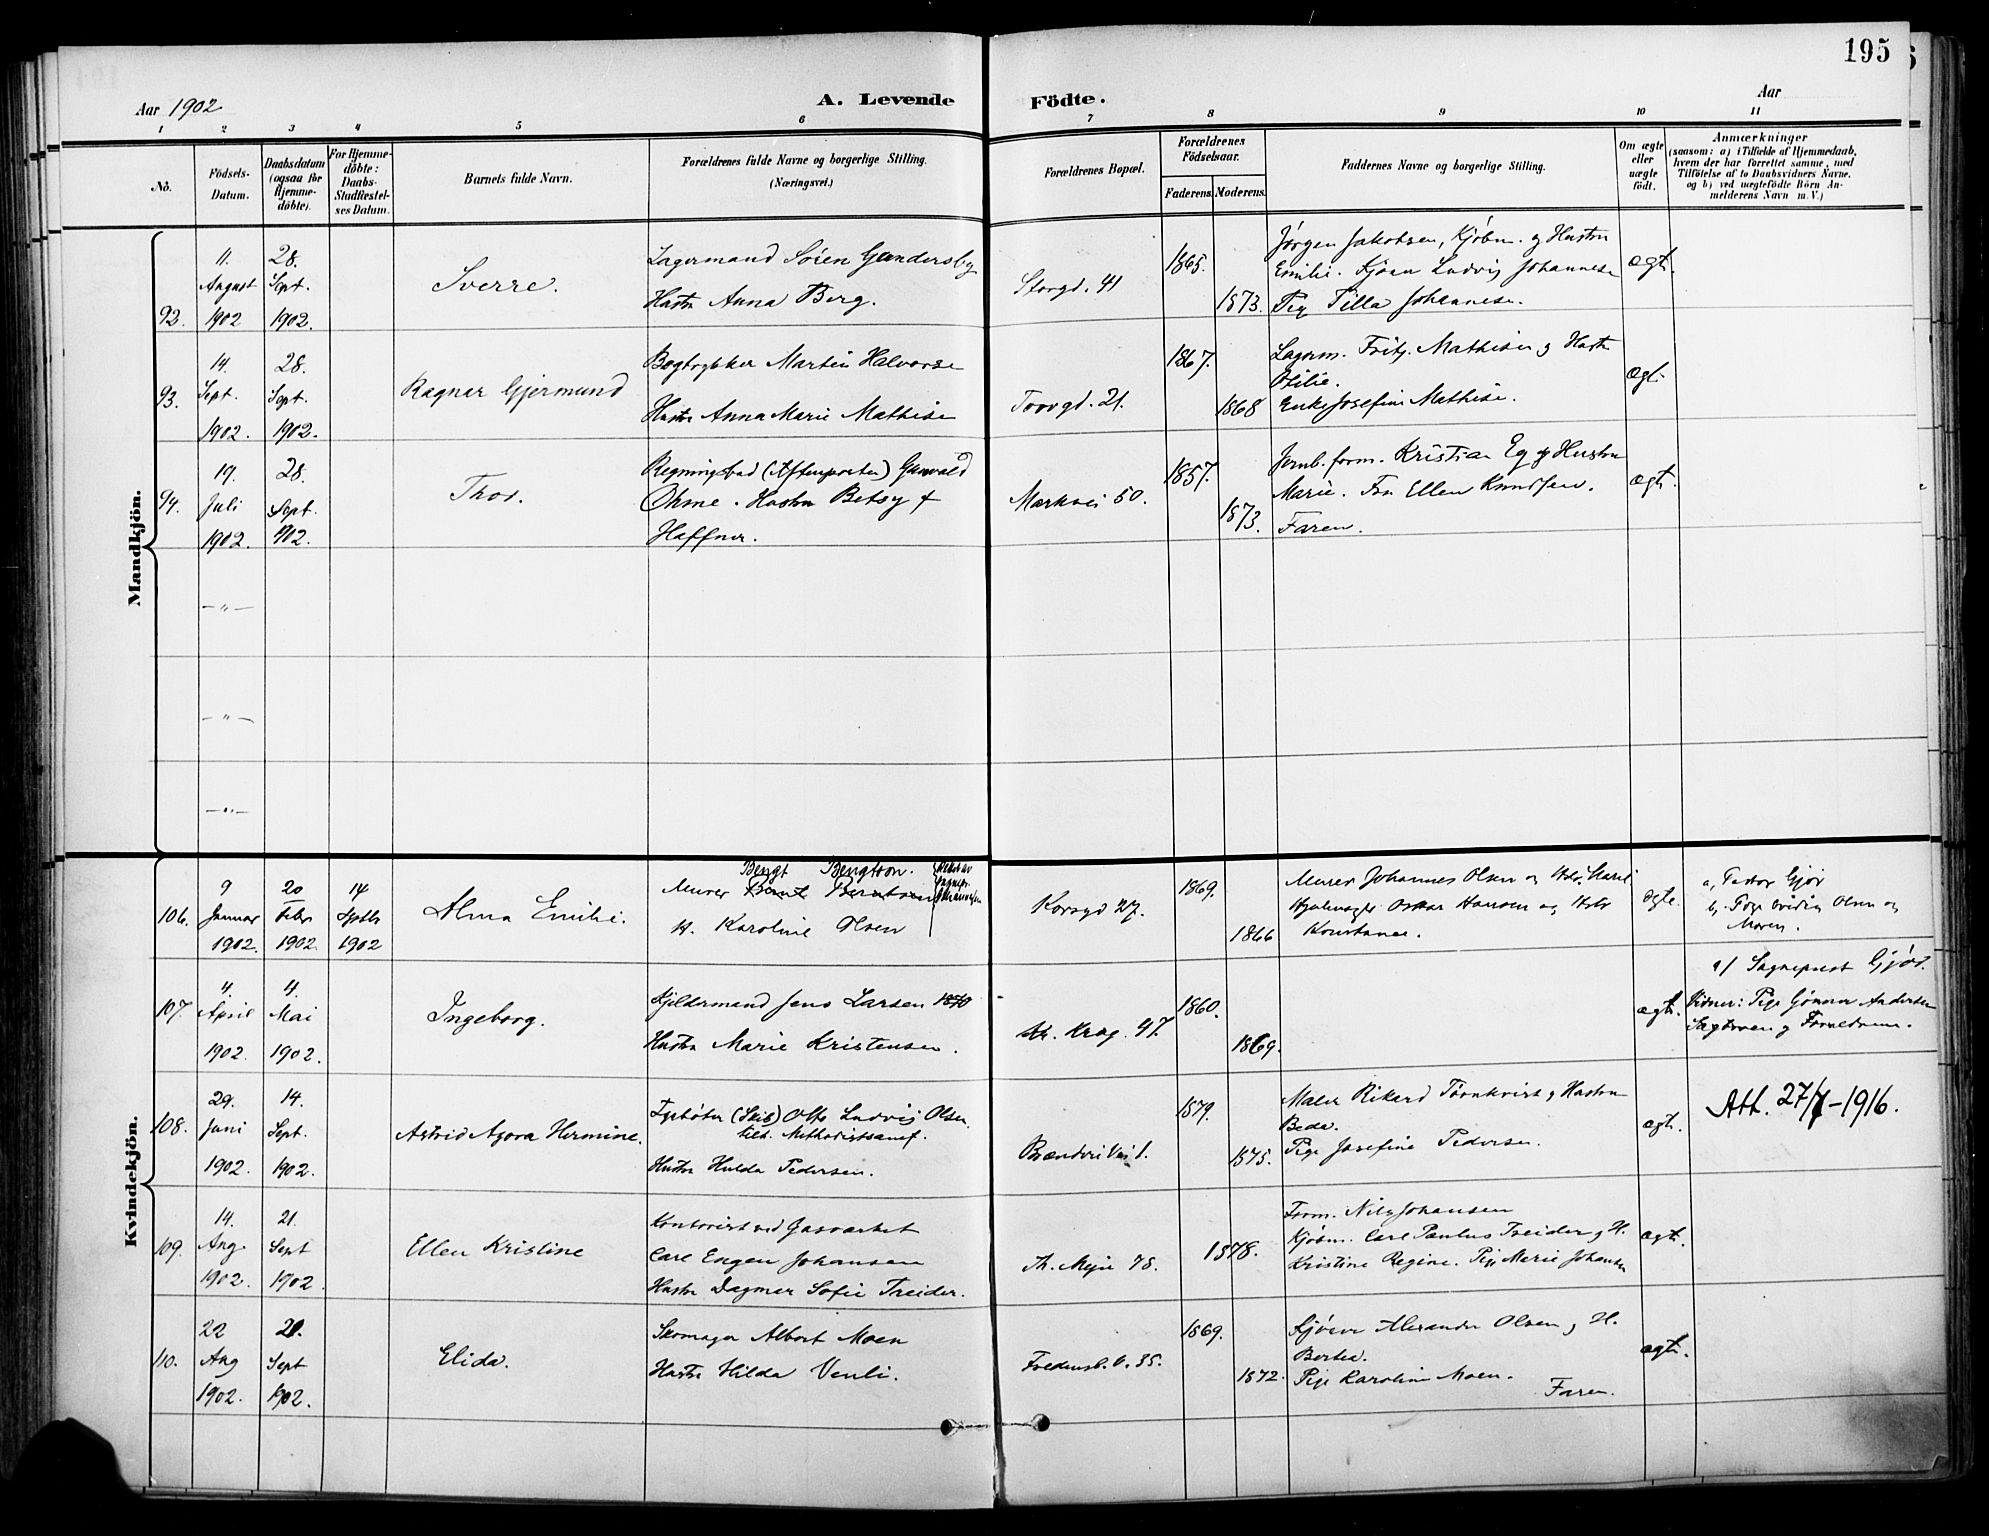 195
Aar 1902
A. Levende Födte.
Aar
1 2 3 4 5 6 7 8 9 10 11
No.
Födsels-
Datum.
Daabsdatum
(ogsaa for
Hjemme-
döbte).
For Hjemme-
döbte:
Daabs-
Stadfæstel-
ses Datum.
Barnets fulde Navn.
Forældrenes fulde Navne og borgerlige Stilling.
(Næringsvei.)
Forældrenes Bopæl.
Forældrenes
Födselsaar.
Faderens. Moderens.
Faddernes Navne og borgerlige Stilling.
Om ægte
eller
uægte
födt.
Anmærkninger
(saasom: a) i Tilfælde af Hjemmedaab,
hvem der har forrettet samme, med
Tilföielse af to Daabsvidners Navne,
og b) ved uægtefödte Börn An-
melderens Navn m. V.)
Mandkjön.
92.
11.
August
1902
28.
Sept.
1902.
Sverre.
Lagermand Sören Gundersby
Hustru Anna Berg.
Storgd. 41
1865.
1873.
Jörgen Jakobsen, Kjöbm. og Hustru
Emilie. Ludvig Johannese
Pige Tilla Johannese.
ægt.
93.
14.
Sept.
1902.
28.
Sept.
1902.
Ragnar Gjermund
Bogtrykker Martin Halvorse
Hustru Anna Marie Mathise
Torvgd. 21.
1867.
1868
Lagerm. Fritz Mathisen og Hustr
Otilie.
Enke Josefine Mathise.
ægt.
94.
19.
Juli
1902.
28.
Sept.
1902.
Thor.
Regningsbud (Aftenposten) Gunvald
Ohme. Hustru Betsy f
Haffner.
Markvei 50.
1857.
1873.
Jernb. form. Kristian Eg og Hustru
Marie. Fru Ellen Knudsen.
Faren.
ægt.
— " —
— " —
— " —
Kvindekjön.
106.
9
Januar
1902.
20
Febr
1902
14
Septbr
1902
Alma Emilie.
Bengt Bengtson.
Murer Bernt Berntsen
H. Karoline Olsen
Korsgd 27.
1869.
1866
Murer Johannes Olsen og
Oskar Hansen og Hstr
Konstance.
ægte.
a, Pastor Gjör
b, Pige Olsen og
Moren.
107.
4.
April
1902.
4.
Mai
1902.
Ingeborg.
Kjeldermand Jens Larsen 1870
Hustru Marie Kristensen.
Str. Krag. 47.
1860.
1869.
ægt.
a/ Sogneprest Gjör.
Vidner: Pige Gunnor Andersen
og Forældrene.
108.
29.
Juni
1902.
14.
Sept.
1902.
Astrid Agora Hermine.
(Skib) Otto Ludvig Olsen
tilh. Methodistsamf.
Hustru Hulda Pedersen.
Brænderi Vei 1.
1879.
1875.
Maler Rikard Törnkvist og Hustru
Beda.
Pige Josefine Pedersen.
ægt.
Att. 27/7-1916.
109.
14.
Aug.
1902.
21.
Sept
1902.
Ellen Kristine
Kontorist ved Gasværket
Carl Eugen Johansen
Hustru Dagmar Sofie Treider.
Th. Meye 78.
1878.
Form. Nils Johansen
Kjöbm. Carl Paulus Treider og H.
Kristine Regine. Pige Marie Johansen
ægt.
110.
22
Aug
1902.
21.
Sept
1902.
Elida.
Skomager Albert Moen
Hustru Hilda Venli.
Fredensb. v. 35.
1869.
1872.
Alexander Olsen og H.
Bertea.
Pige Karoline Moen.
Faren.
ægt.